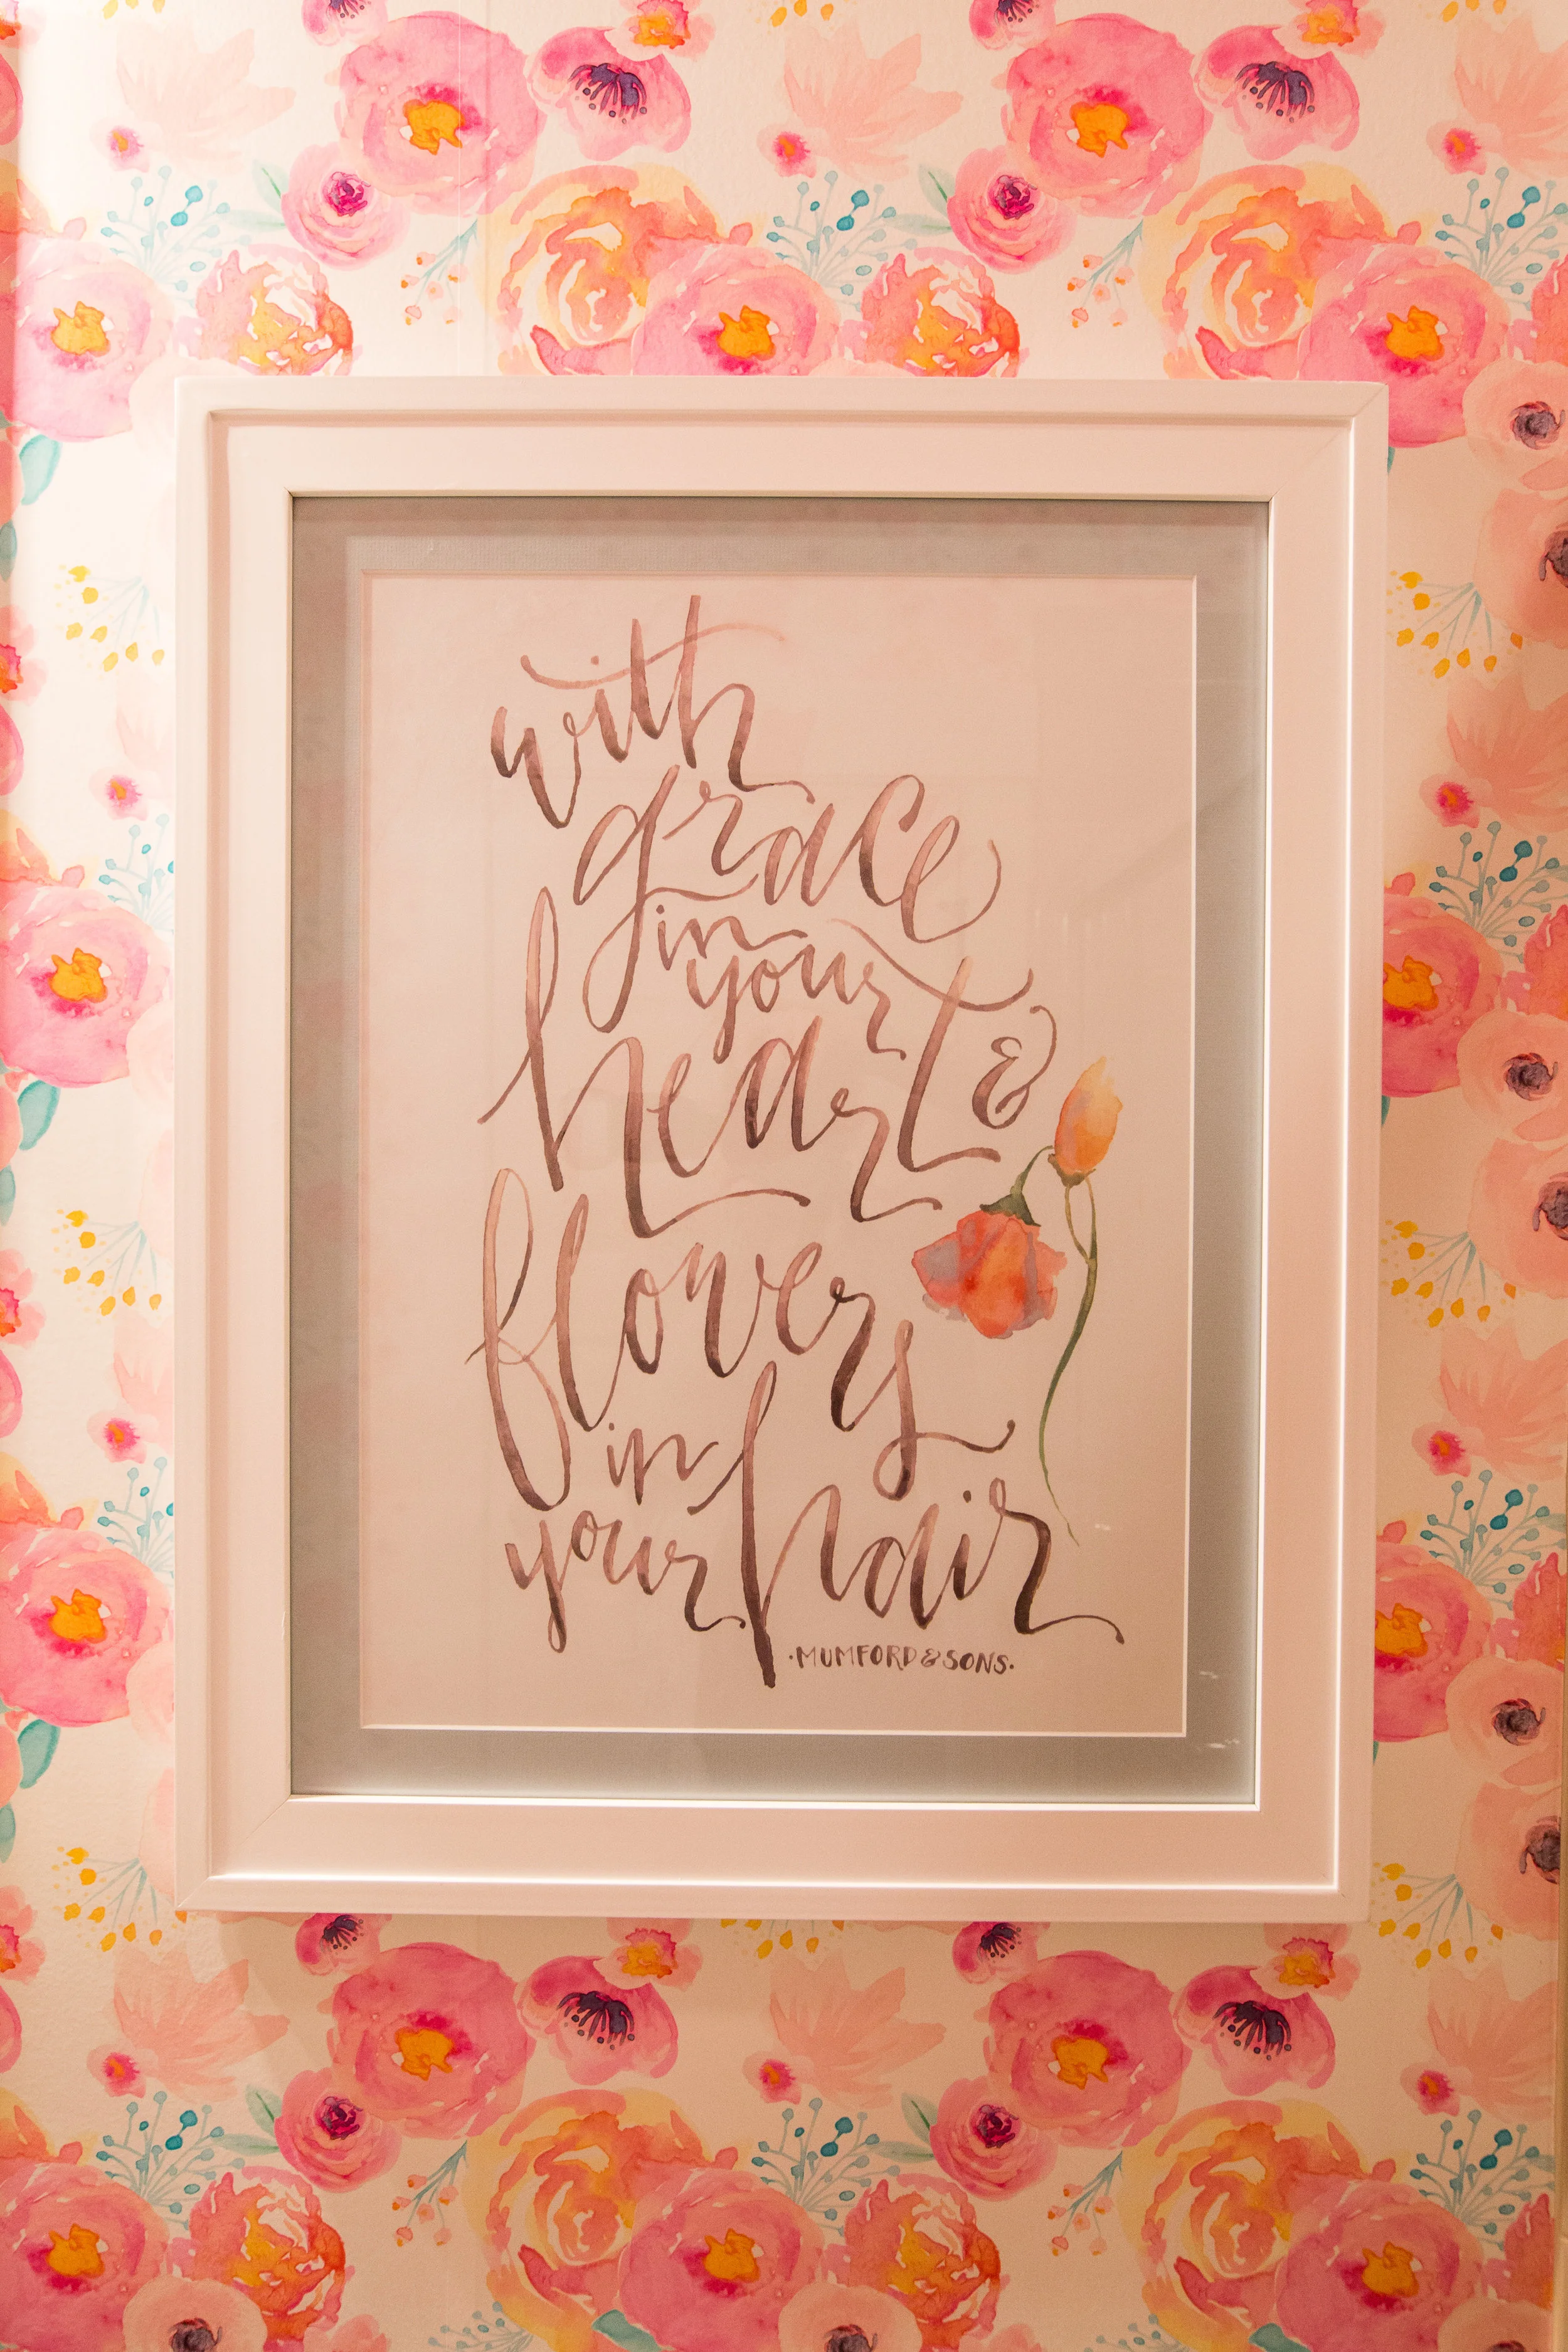 with
grace
in
your
heart &
flowers
in
your hair
·MUMFORD & SONS·